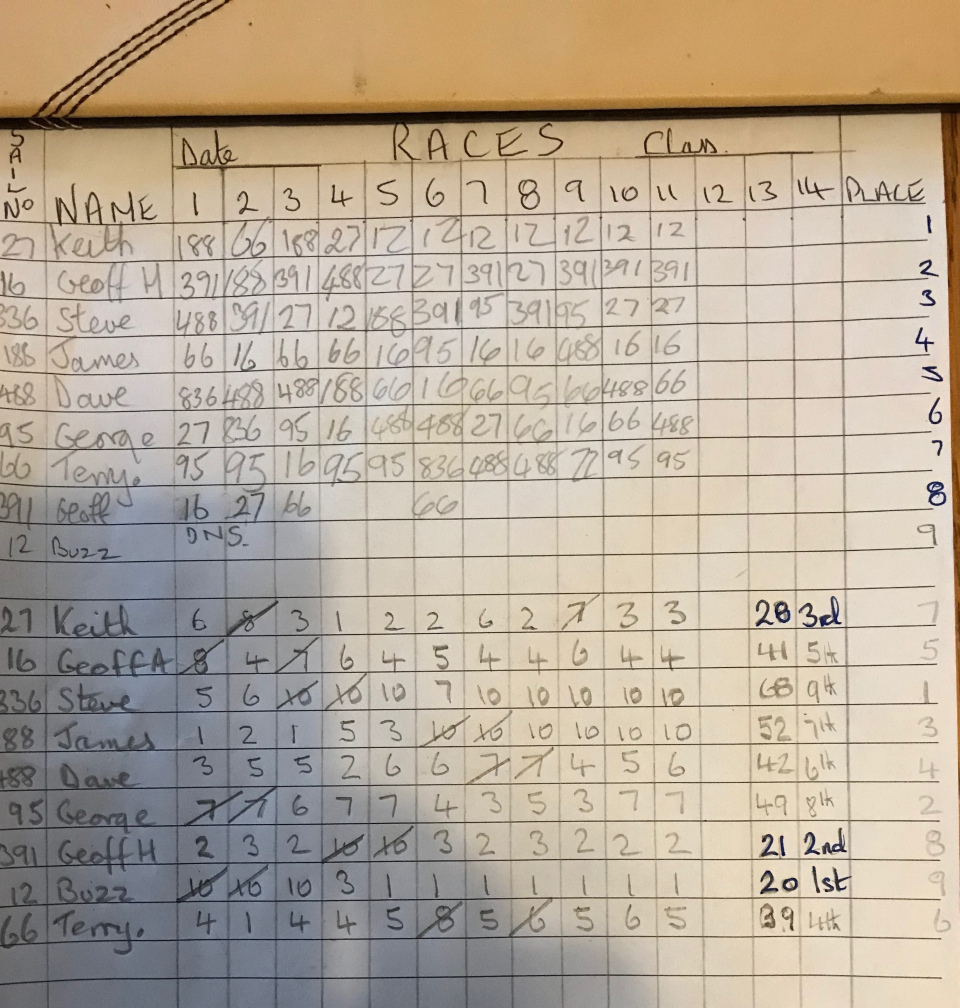 SAIL Date RACES Class.
NO NAME 1 2 3 4 5 6 7 8 9 10 11 12 13 14 PLACE
27 Keith 188 66 188 27 12 12 12 12 12 12 12 1
16 Geoff H 391 188 391 488 27 27 391 27 391 391 391 2
836 Steve 488 391 27 12 188 391 95 391 95 27 27 3
188 James 66 16 66 66 16 95 16 16 488 16 16 4
488 Dave 836 488 488 188 66 16 66 95 66 488 66 5
95 George 27 836 95 16 488 488 27 66 16 66 488 6
66 Terry. 95 95 16 95 95 836 488 488 95 95 7
391 Geoff 16 27 66 66 8
12 Buzz DNS. 9
27 Keith 6 8 3 1 2 2 6 2 7 3 3 28 3rd 7
16 Geoff A 8 4 7 6 4 5 4 4 6 4 4 41 5th 5
336 Steve 5 6 10 10 10 7 10 10 10 10 10 68 9th 1
88 James 1 2 1 5 3 10 10 10 10 10 10 52 7th 3
488 Dave 3 5 5 2 6 6 7 7 4 5 6 42 6th 4
95 George 7 7 6 7 7 4 3 5 3 7 7 49 8th 2
391 Geoff H 2 3 2 10 10 3 2 3 2 2 2 21 2nd 8
12 Buzz 10 10 10 3 1 1 1 1 1 1 1 20 1st 9
66 Terry. 4 1 4 4 5 8 5 6 5 6 5 39 4th 6